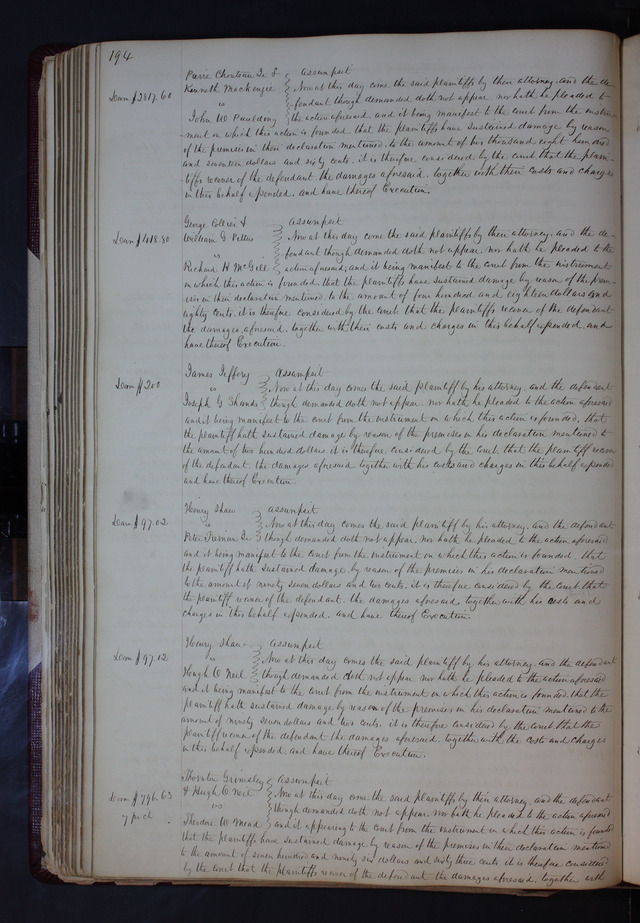 194
Pierre Chouteau Jr &
Kenneth Mackenzie
vs
John W Paulding
assumpsit
Dam $2817.60
Now at this day come the said plaintiffs by their attorney, and the de-
fendant though demanded doth not appear nor hath he pleaded to
the action aforesaid and it being manifest to the court from the instru-
ment on which this action is founded, that the plaintiffs have sustained damage by reason
of the premises in their declaration mentioned, to the amount of two thousand eight hundred
and seventeen dollars and sixty cents. it is therefore considered by the court that the plain-
tiffs recover of the defendant the damages aforesaid, together with their costs and charges
in this behalf expended, and have thereof Execution.
George Collier &
William G Pettus
vs
Richard H McGill
assumpsit
Dam $418.80
Now at this day come the said plaintiffs by their attorney, and the de-
fendant though demanded doth not appear, nor hath he pleaded to the
action aforesaid, and it being manifest to the court from the instrument
on which this action is founded, that the plaintiffs have sustained damage by reason of the prem-
ises in their declaration mentioned to the amount of four hundred and eighteen dollars and
eighty cents. it is therefore considered by the court that the plaintiffs recover of the defendant
the damages aforesaid, together with their costs and charges in this behalf expended, and
have thereof Execution.
James Jeffery
vs
Joseph G Shands
Assumpsit
Dam $200
Now at this day comes the said plaintiff by his attorney, and the defendant
though demanded doth not appear, nor hath he pleaded to the action aforesaid
and it being manifest to the court from the instrument on which this action is founded, that
the plaintiff hath sustained damage by reason of the premises in his declaration mentioned to
the amount of two hundred dollars. it is therefore considered by the court that the plaintiff recover
of the defendant, the damages aforesaid together with his costs and charges in this behalf expended
and have thereof Execution.
Henry Shaw
vs
Peter Jr
assumpsit
Dam $97.02
Now at this day comes the said plaintiff by his attorney, and the defendant
though demanded doth not appear, nor hath he pleaded to the action aforesaid
and it being manifest to the Court from the instrument on which this action is founded, that
the plaintiff hath sustained damage, by reason of the premises in his declaration mentioned
to the amount of ninety seven dollars and two cents, it is therefore considered by the Court, that
the plaintiff recover of the defendant, the damages aforesaid, together with his costs and
charges in this behalf expended, and have thereof Execution.
Henry Shaw
vs
Hough O Neil
assumpsit
Dam $97.02
Now at this day comes the said plaintiff by his attorney, and the defendant
though demanded doth not appear nor hath he pleaded to the action aforesaid
and it being manifest to the Court from the instrument on which this action is founded, that the
plaintiff hath sustained damage by reason of the premises in his declaration mentioned to the
amount of ninety seven dollars and two cents. it is therefore considered by the Court that the
plaintiff recover of the defendant the damages aforesaid, together with, the costs and charges
in this behalf expended, and have thereof Execution.
Thornton Grimsley
& Hugh O Neil
vs
Theodore W Mead
assumpsit
Dam $796.63
Now at this day come the said plaintiffs by their attorney, and the defendant
though demanded doth not appear nor hath he pleaded to the action aforesaid
and it appearing to the Court from the instrument on which this action is founded
that the plaintiffs have sustained damage by reason of the premises in their declaration mentioned
to the amount of seven hundred and ninety six dollars and sixty three cents it is therefore considered
by the Court that the plaintiffs recover of the defendant the damages aforesaid, together with